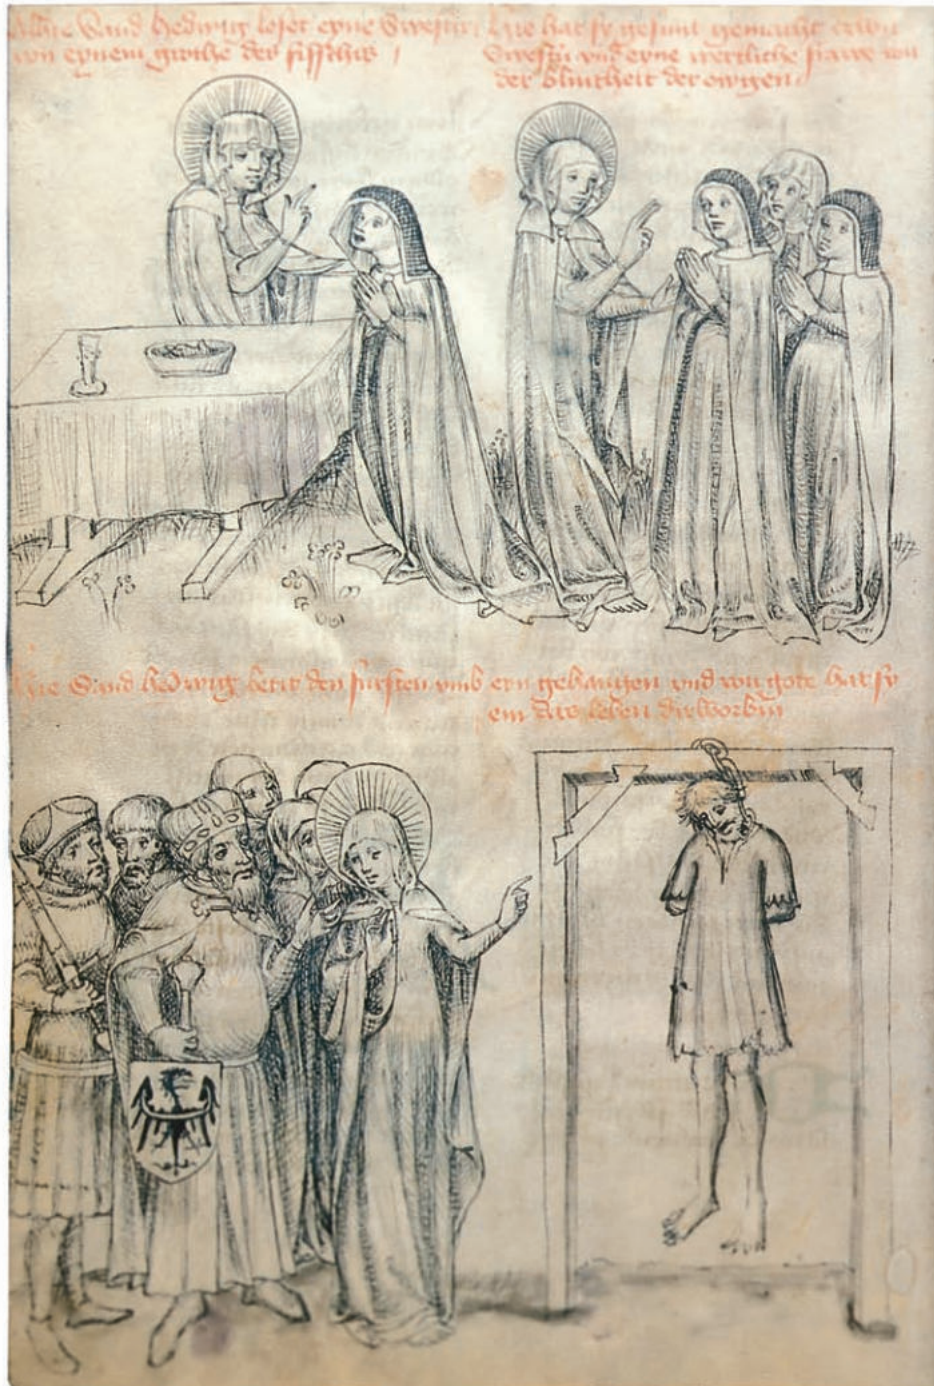 Sand hedwig loset eyne Swester
von eynem grothe des fissches
hat sy gesunt gemacht
Swestir vnd eyne werltliche frawe von
der blintheit der owgen
Sand hedwig betit den fursten vmb eyn gehangen vnd von gote hat sy
em das leben dirworbin